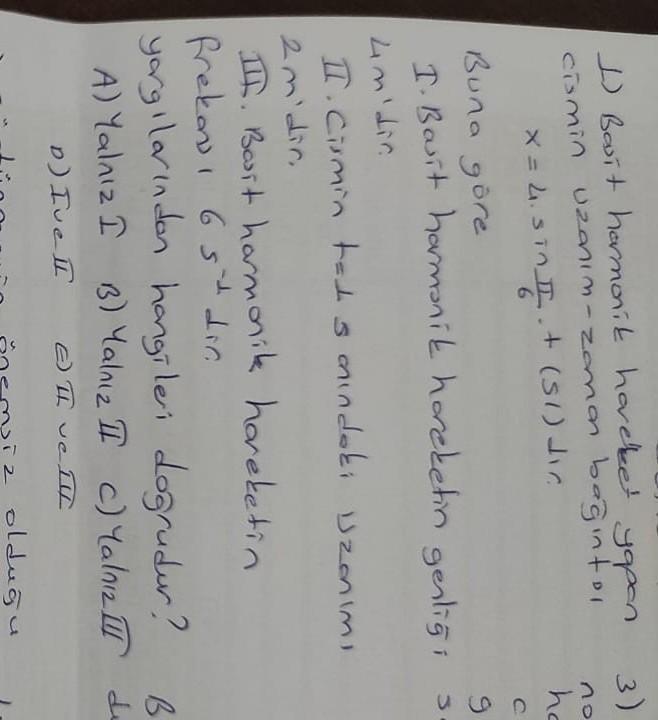 1) Basit harmonik hareket yapan
cismin uzanım-zaman bağıntısı
x = 4. sin π/6 . t (SI) dır.
Buna göre
I. Basit harmonik hareketin genliği
4m'dir.
II. Cismin t=1 s anındaki uzanımı
2m'dir.
III. Basit harmonik hareketin
frekansı 6 s⁻¹ dir.
yargılarından hangileri doğrudur?
A) Yalnız I B) Yalnız II C) Yalnız III
D) I ve II E) II ve III
önemsiz olduğu
3)